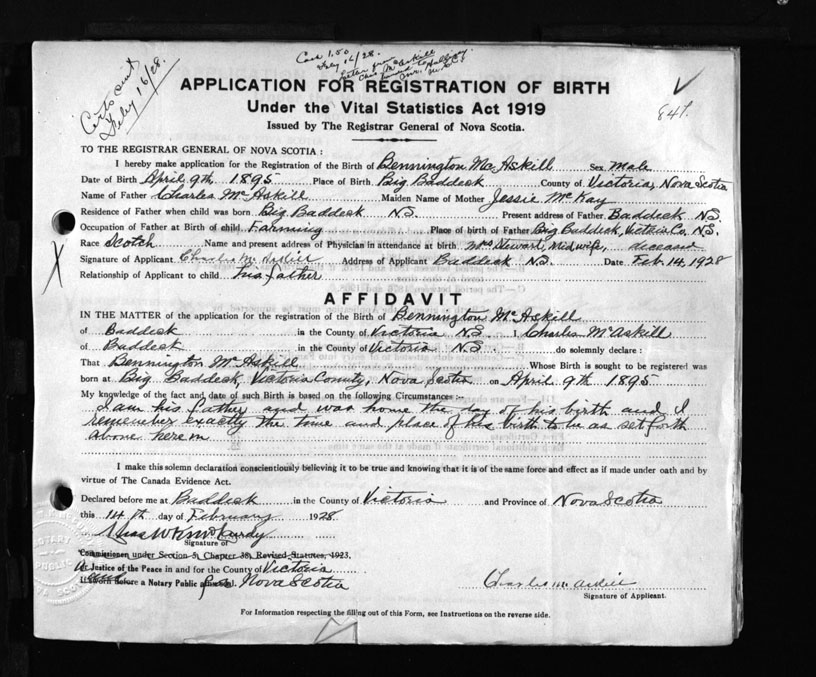 Certs sent
Feby 16/28.
Cash 1.50
Feby 16/28.
Letter from
Chas McAskill
APPLICATION FOR REGISTRATION OF BIRTH
Under the Vital Statistics Act 1919
841.
Issued by The Registrar General of Nova Scotia.
TO THE REGISTRAR GENERAL OF NOVA SCOTIA :
I hereby make application for the Registration of the Birth of Bennington McAskill Sex Male
Date of Birth April 9th 1895 Place of Birth Big Baddeck County of Victoria, Nova Scotia
Name of Father Charles McAskill Maiden Name of Mother Jessie McKay
Residence of Father when child was born Big Baddeck N.S. Present address of Father Baddeck N.S.
Occupation of Father at Birth of child Farming Place of birth of Father Big Baddeck, Victoria Co, N.S.
Race Scotch Name and present address of Physician in attendance at birth Mrs Stewart, Midwife, deceased
Signature of Applicant Charles McAskill Address of Applicant Baddeck N.S. Date Feb. 14, 1928
Relationship of Applicant to child his father
AFFIDAVIT
IN THE MATTER of the application for the registration of the Birth of Bennington McAskill
of Baddeck in the County of Victoria N.S. I Charles McAskill
of Baddeck in the County of Victoria N.S. do solemnly declare :
That Bennington McAskill Whose Birth is sought to be registered was
born at Big Baddeck, Victoria County, Nova Scotia on April 9th 1895
My knowledge of the fact and date of such Birth is based on the following Circumstances :-
I am his father and was home the day of his birth and I
remember exactly the time and place of his birth to be as set forth
above herein
I make this solemn declaration conscientiously believing it to be true and knowing that it is of the same force and effect as if made under oath and by
virtue of The Canada Evidence Act.
Declared before me at Baddeck in the County of Victoria and Province of Nova Scotia
this 14th day of February 1928
Signature of
Commissioner under Section 5, Chapter 38, Revised Statutes, 1923.
or Justice of the Peace in and for the County of Victoria
If sworn before a Notary Public Nova Scotia
Charles McAskill
Signature of Applicant.
For Information respecting the filling out of this Form, see Instructions on the reverse side.